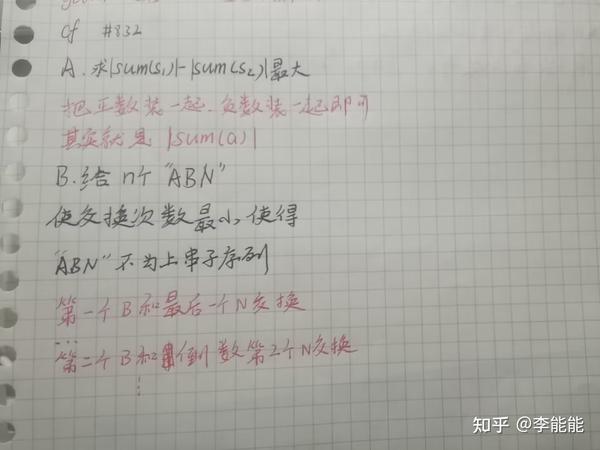 cf #832
A.求|sum(s₁)|-|sum(s₂)|最大
把正数装一起.负数装一起即可
其实就是|sum(a)|
B.给n个"ABN"
使交换次数最小,使得
"ABN"不为上串子序列
第一个B和最后一个N交换
...
第二个B和倒数第2个N交换
⋮
知乎 @李能能